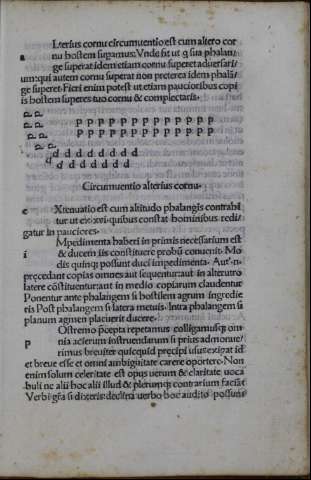 Lterius cornu circumuentio est cum altero cor
a
nu hostem fugamus: Vnde fit ut q sua phalan/
ge superat idem etiam cornu superet aduersari/
um: qui autem cornu superat non preterea idem phalā/
ge superet. Fieri enim potest ut etiam paucioribus copi
is hostem superes tuo cornu & complectaris.
P P P P P P P P P P P P P
P P P P P P P P P P P P P
d d d d d d d d
d d d d d d d
Circumuentio alterius cornu.
e Xtenuatio est cum altitudo phalangis contrahi
tur ut ex .xvi. quibus constat hominibus redi/
gatur in pauciores.
Mpedimenta haberi in primis necessarium est
i & ducem iis constituere probū conuenit. Mo
dis quinq; possunt duci impedimenta. Aut .n.
præcedant copias omnes aut sequentur aut in alterutro
latere cōstituentur aut in medio copiarum claudentur
Ponentur ante phalangem si hostilem agrum ingredie
ris Post phalangem si latera metuis. Intra phalangem si
planum agmen placuerit ducere.
Ostremo præcepta repetamus colligamusq; om
p nia acierum instruendarum si prius admonue/
rimus breuiter quicquid præcipi usus exigat id
et breue esse et omni ambiguitate carere oportere. Non
enim solum celeritate est opus uerum & claritate uoca
buli ne alii hoc alii illud & plerunq; contrarium faciāt
Verbi grā si dixeris declina uerbo hoc audito possuns